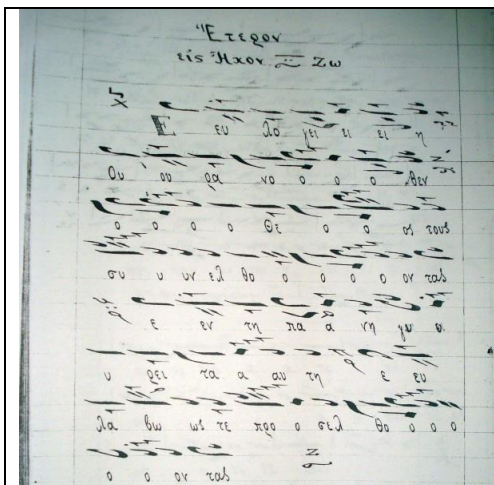 Ἕτερον
εἰς Ἦχον Ζω
Ε ευ λο γει ει ει η
Ου ου ρα νο ο ο ο θεν
ο ο ο ο Θε ο ο ος τους
συ υ υν ελ θο ο ο ο ο ον τας
ε εν τη πα α νη γυ υ
υ ρει τα α αυ τη ε ευ
λα βω ως τε προ ο σελ θο ο ο ο
ο ο ον τας